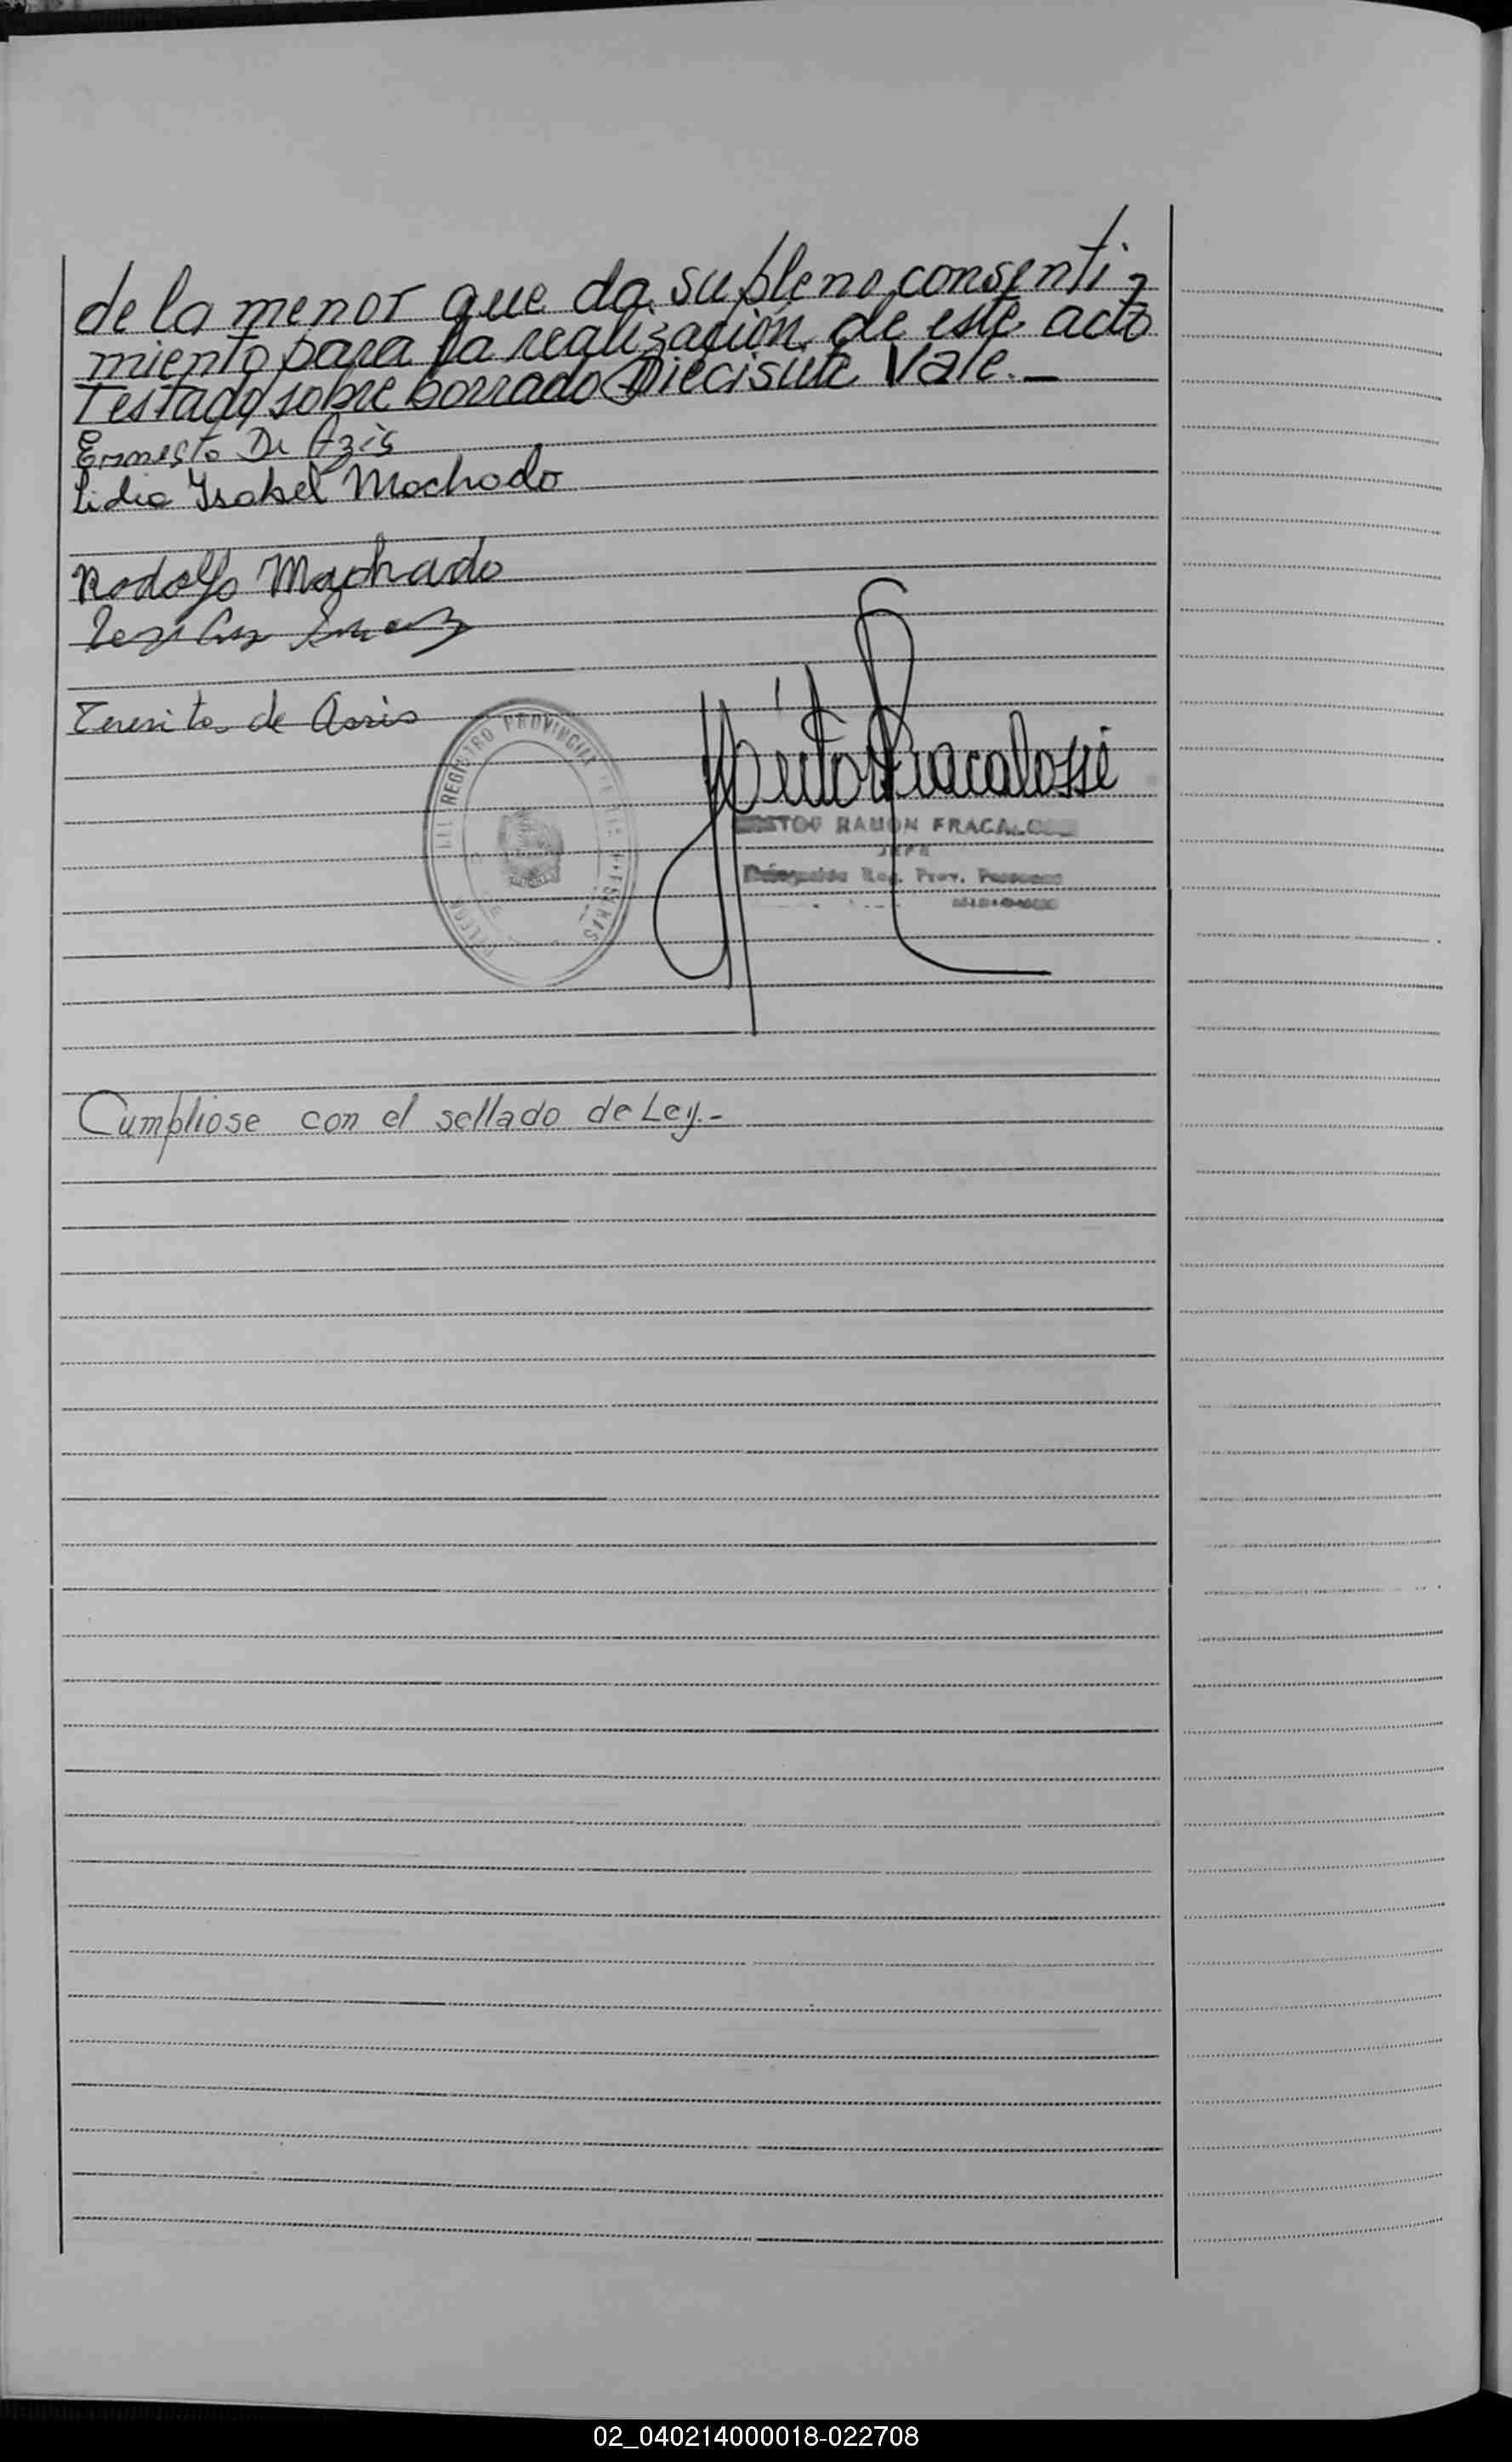 de la menor que da su pleno consenti-
miento para la realización de este acto
Testado sobre borrado Diecisiete Vale.-
Ernesto De Azis
Lidia Ysabel Machado
Rodolfo Machado
Teresita de Asis
REGISTRO PROVINCIAL
Héctor Fracalossi
RAMON FRACALOSSI
JEFE
Delegación Reg. Prov. Personas
Cumpliose con el sellado de Ley.-
02_040214000018-022708